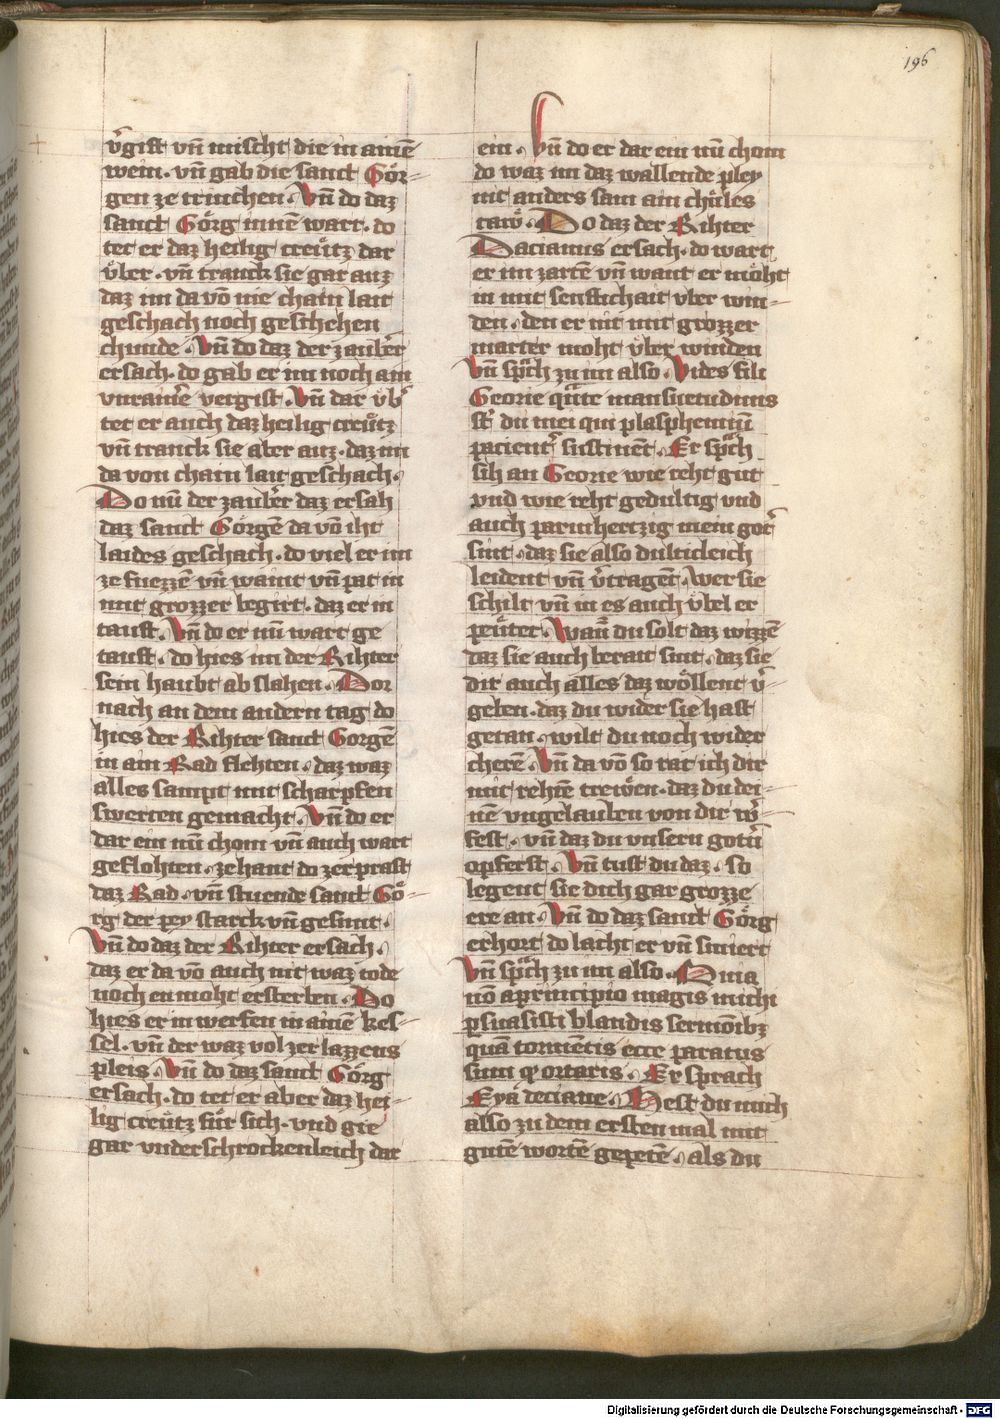 196
v̄gift vn̄ mischt die in ainē
wein · vn̄ gab die sanct Gör-
gen ze trinchen · Vn̄ do daz
sanct Görg innē wart · do
tet er daz heilig creütz dar
v̈ber · vn̄ tranck sie gar auz
daz im da vō nie chain lait
geschach noch geschehen
chunde · Vn̄ do daz der zaubrer
ersach · do gab er im noch ain
vnrainē vergift · Vn̄ dar v̈b͛
tet er auch daz heilig creütz
vn̄ tranck sie aber auz · daz im
da von chain lait geschach ·
Do nu der zaubrer daz ersah
daz sanct Görgē da vō iht
laides geschach · do viel er im
ze fuezzē vn̄ waint vn̄ pat in
mit grozzer begirt · daz er in
tauft · Vn̄ do er nu wart ge
tauft · do hies im der Rihter
sein haubt ab slahen · Dor
nach an dem andern tag do
hies der Rihter sanct Gorgē
in ain Rad flehten · daz waz
alles sampt mit scharpfen
swerten gemacht · Vn̄ do er
dar ein nu chom vn̄ auch wart
geflohten · zehant do zerprast
daz Rad · vn̄ stuende sanct Gö-
rg der pey starck vn̄ gesunt ·
Vn̄ do daz der Rihter ersach ·
daz er da vō auch nit waz tode
noch en moht ersterben · Do
hies er in werfen in ainē kes-
sel · vn̄ der waz vol zerlazzens
pleis · Vn̄ do daz sanct Görg
ersach · do tet er aber daz hei-
lig creütz für sich · vnd gie
gar vnderschrockenleich dar
ein · Vn̄ do er dar ein nu chom
do waz im daz wallende pley
nit anders sam ain chüles
tawͤ · Do daz der Rihter
Dacianus ersach · do wart
er im zartē vn̄ want er möht
in mit senftichait vber win-
den · den er nit mit grozzer
marter moht v̈ber winden
Vn̄ sprach zu im also · Vides fili
Georie qāte mansuetudinis
st͛ du mei qui plasphemiū
pacient͛ sustinēt · Er sprach
sih an Georie wie reht gut
vnd wie reht gedultig vnd
auch parmhertzig mein got͛
sint · daz sie also dulticleich
leident vn̄ v̄tragēt · Wer sie
schilt vn̄ in es auch v̈bel er
peüter · Wan̄ du solt daz wizzē
daz sie auch berait sint · daz sie
dir auch alles daz wöllent v̄-
geben · daz du wider sie hast
getan · wilt du noch wider
cherē · Vn̄ da vō so rat ich dir
mit rehtē trewen · daz du dei-
nē vngelauben von dir w͛-
fest · vn̄ daz du vnsern gotn̄
opferst · Vn̄ tust du daz · so
legent sie dich gar grozze
ere an · Vn̄ do daz sanct Görg
erhort do lacht er vn̄ smiert
Vn̄ sprach zu im also ·
nō aprincipio magis michi
psuasisti blandis sermōibz
quā tormētis ecce paratus
sum qͦ ortaris · Er sprach
Eya deciane · Hest du mich
also zu dem ersten mal mit
gutē wortē gepetē · als du
Digitalisierung gefördert durch die Deutsche Forschungsgemeinschaft - DFG